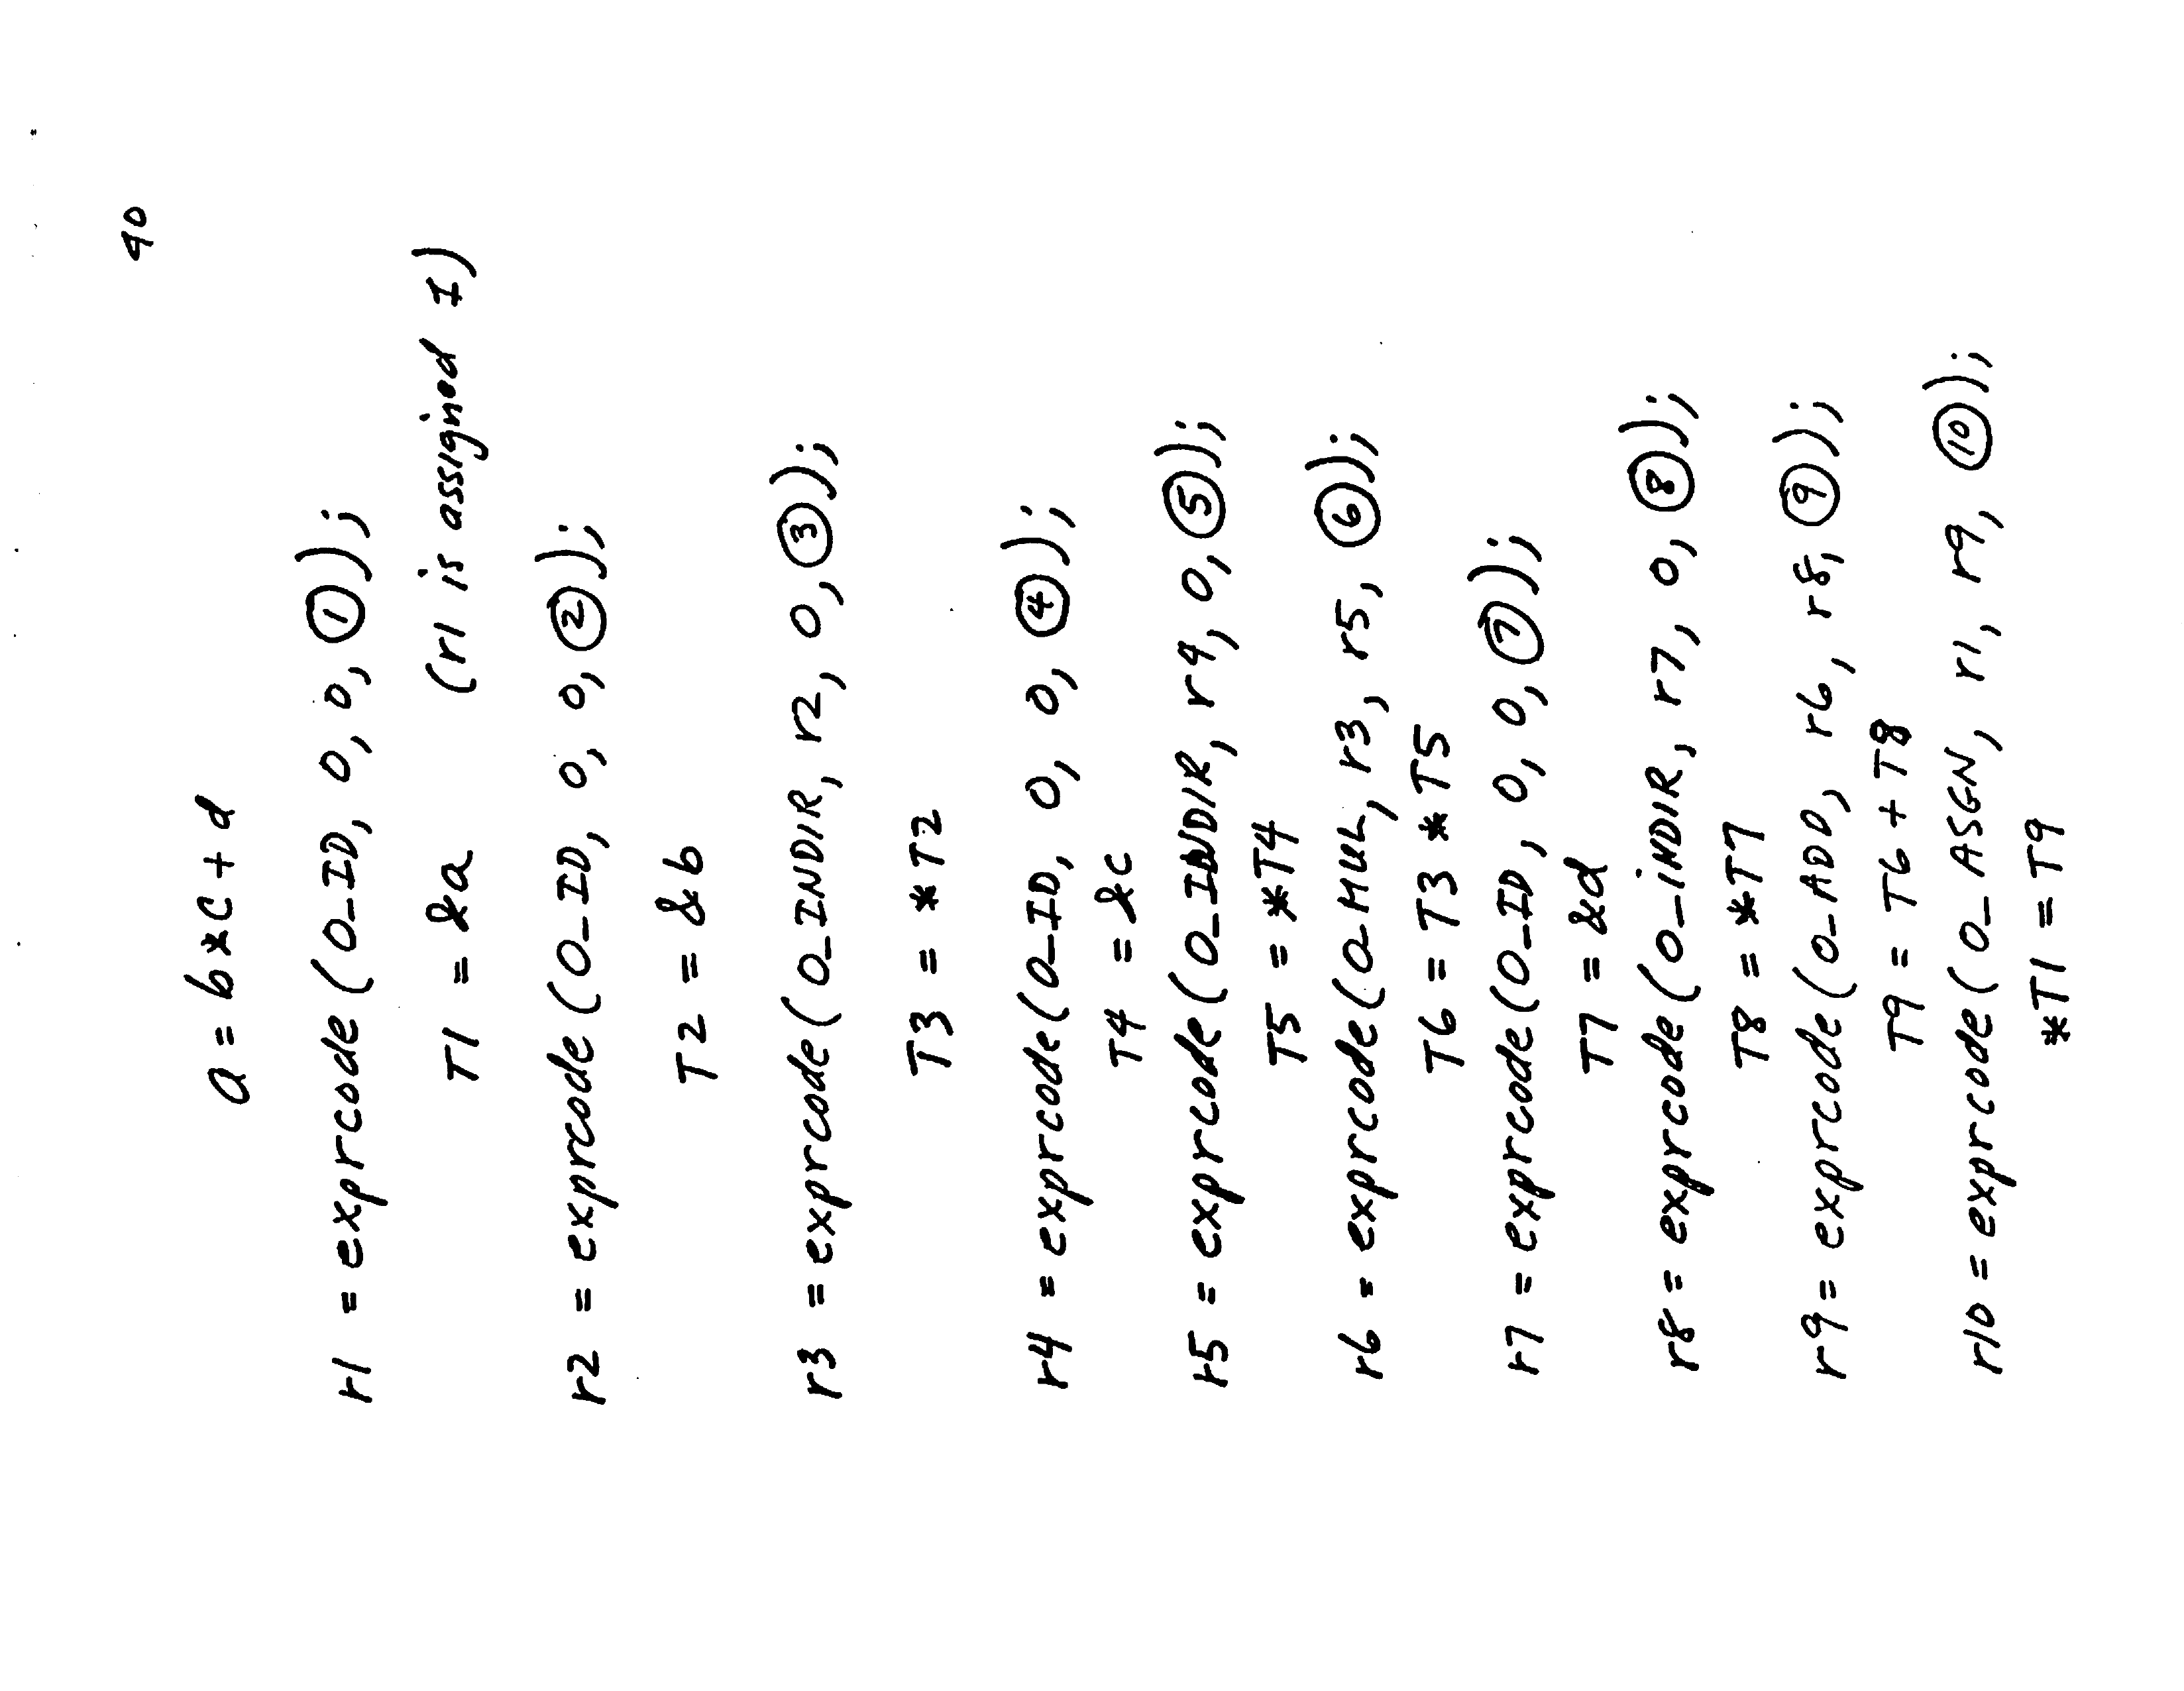 40
a = b*c + d
r1 = exprcode (O_ID, 0, 0, ①);
T1 = &a (r1 is assigned 1)
r2 = exprcode (O_ID, 0, 0, ②);
T2 = &b
r3 = exprcode (O_INDIR, r2, 0, ③);
T3 = *T2
r4 = exprcode (O_ID, 0, 0, ④);
T4 = &c
r5 = exprcode (O_INDIR, r4, 0, ⑤);
T5 = *T4
r6 = exprcode (O_MUL, r3, r5, ⑥);
T6 = T3 * T5
r7 = exprcode (O_ID, 0, 0, ⑦);
T7 = &d
r8 = exprcode (O_INDIR, r7, 0, ⑧);
T8 = *T7
r9 = exprcode (O_ADD, r6, r8, ⑨);
T9 = T6 + T8
r10 = exprcode (O_ASGN, r1, r9, ⑩);
*T1 = T9